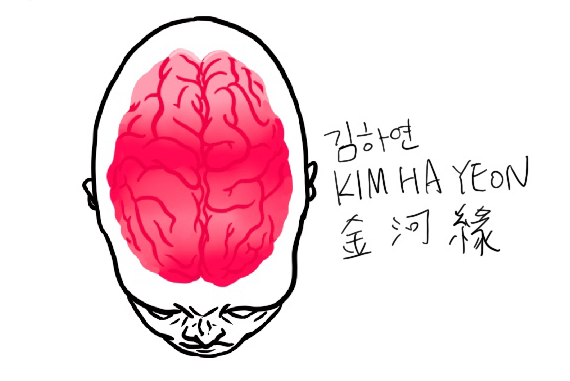 김하연
KIM HA YEON
金河緣